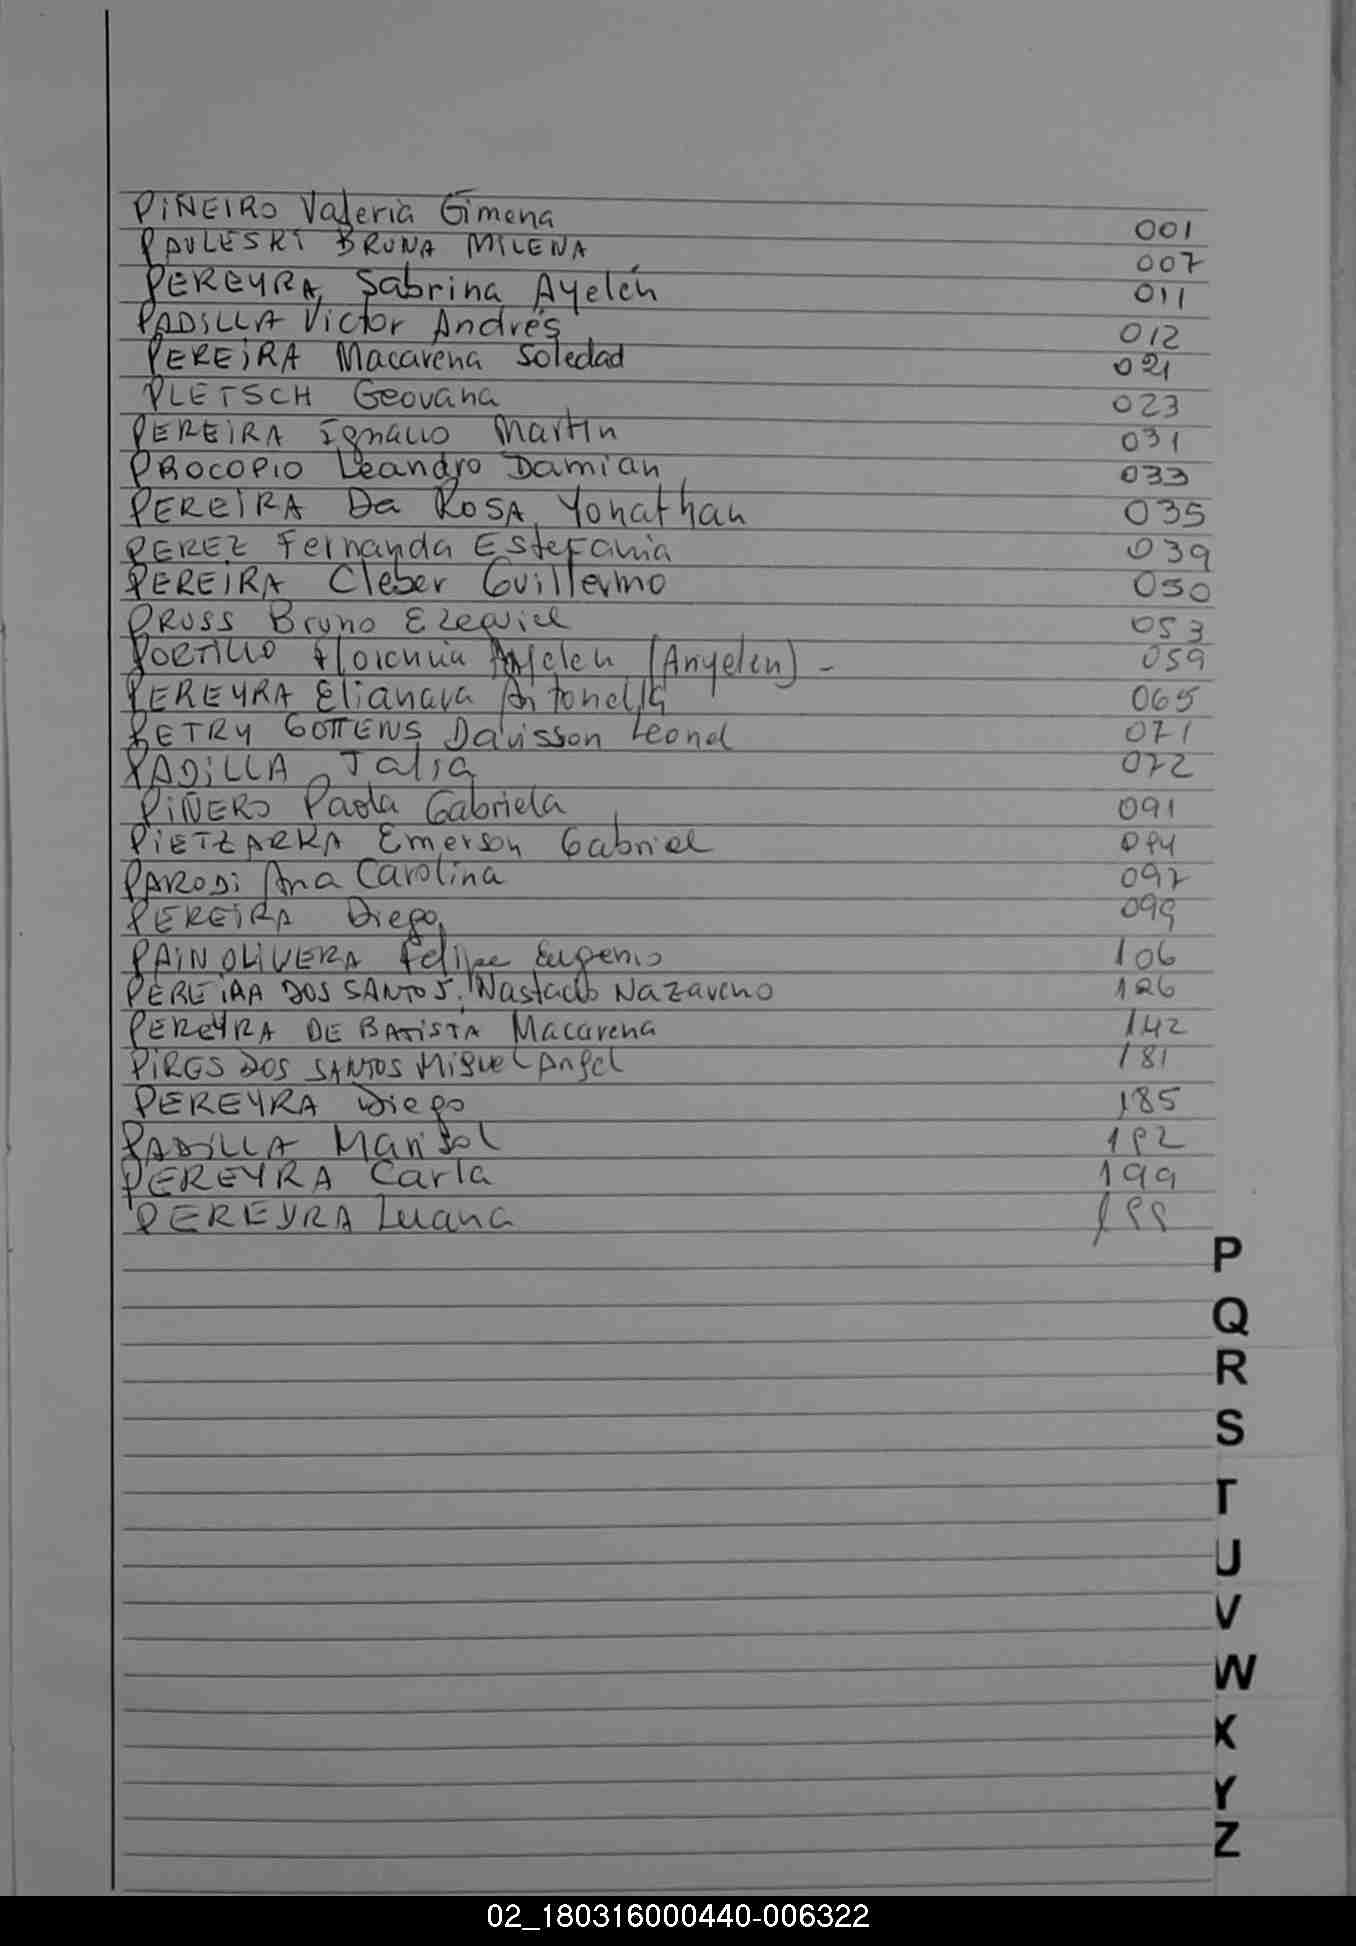 PIÑEIRO Valeria Gimena 001
PAULESKI BRUNA MILENA 007
PEREYRA, Sabrina Ayelén 011
PADILLA Victor Andrés 012
PEREIRA Macarena Soledad 021
PLETSCH Geovana 023
PEREIRA Ignacio Martin 031
PROCOPIO Leandro Damian 033
PEREIRA Da ROSA, Yonathan 035
PEREZ Fernanda Estefania 039
PEREIRA Cleber Guillermo 050
PRUSS Bruno Ezequiel 053
PORTILLO Florencia (Anyelen) - 059
PEREYRA Elianara Antonella 065
PETRY GOTTENS Davisson Leonel 071
PADILLA Talia 072
PIÑERO Paola Gabriela 091
PIETZARKA Emerson Gabriel 094
PARODI Ana Carolina 097
PEREIRA Diego 099
PAIN OLIVERA Felipe Eugenio 106
PEREIRA DOS SANTOS, Nazareno 126
PEREYRA DE BATISTA Macarena 142
PIRES DOS SANTOS Miguel Angel 181
PEREYRA Diego 185
PADILLA Marisol 192
PEREYRA Carla 199
PEREYRA Luana 199
P
Q
R
S
T
U
V
W
X
Y
Z
02_180316000440-006322